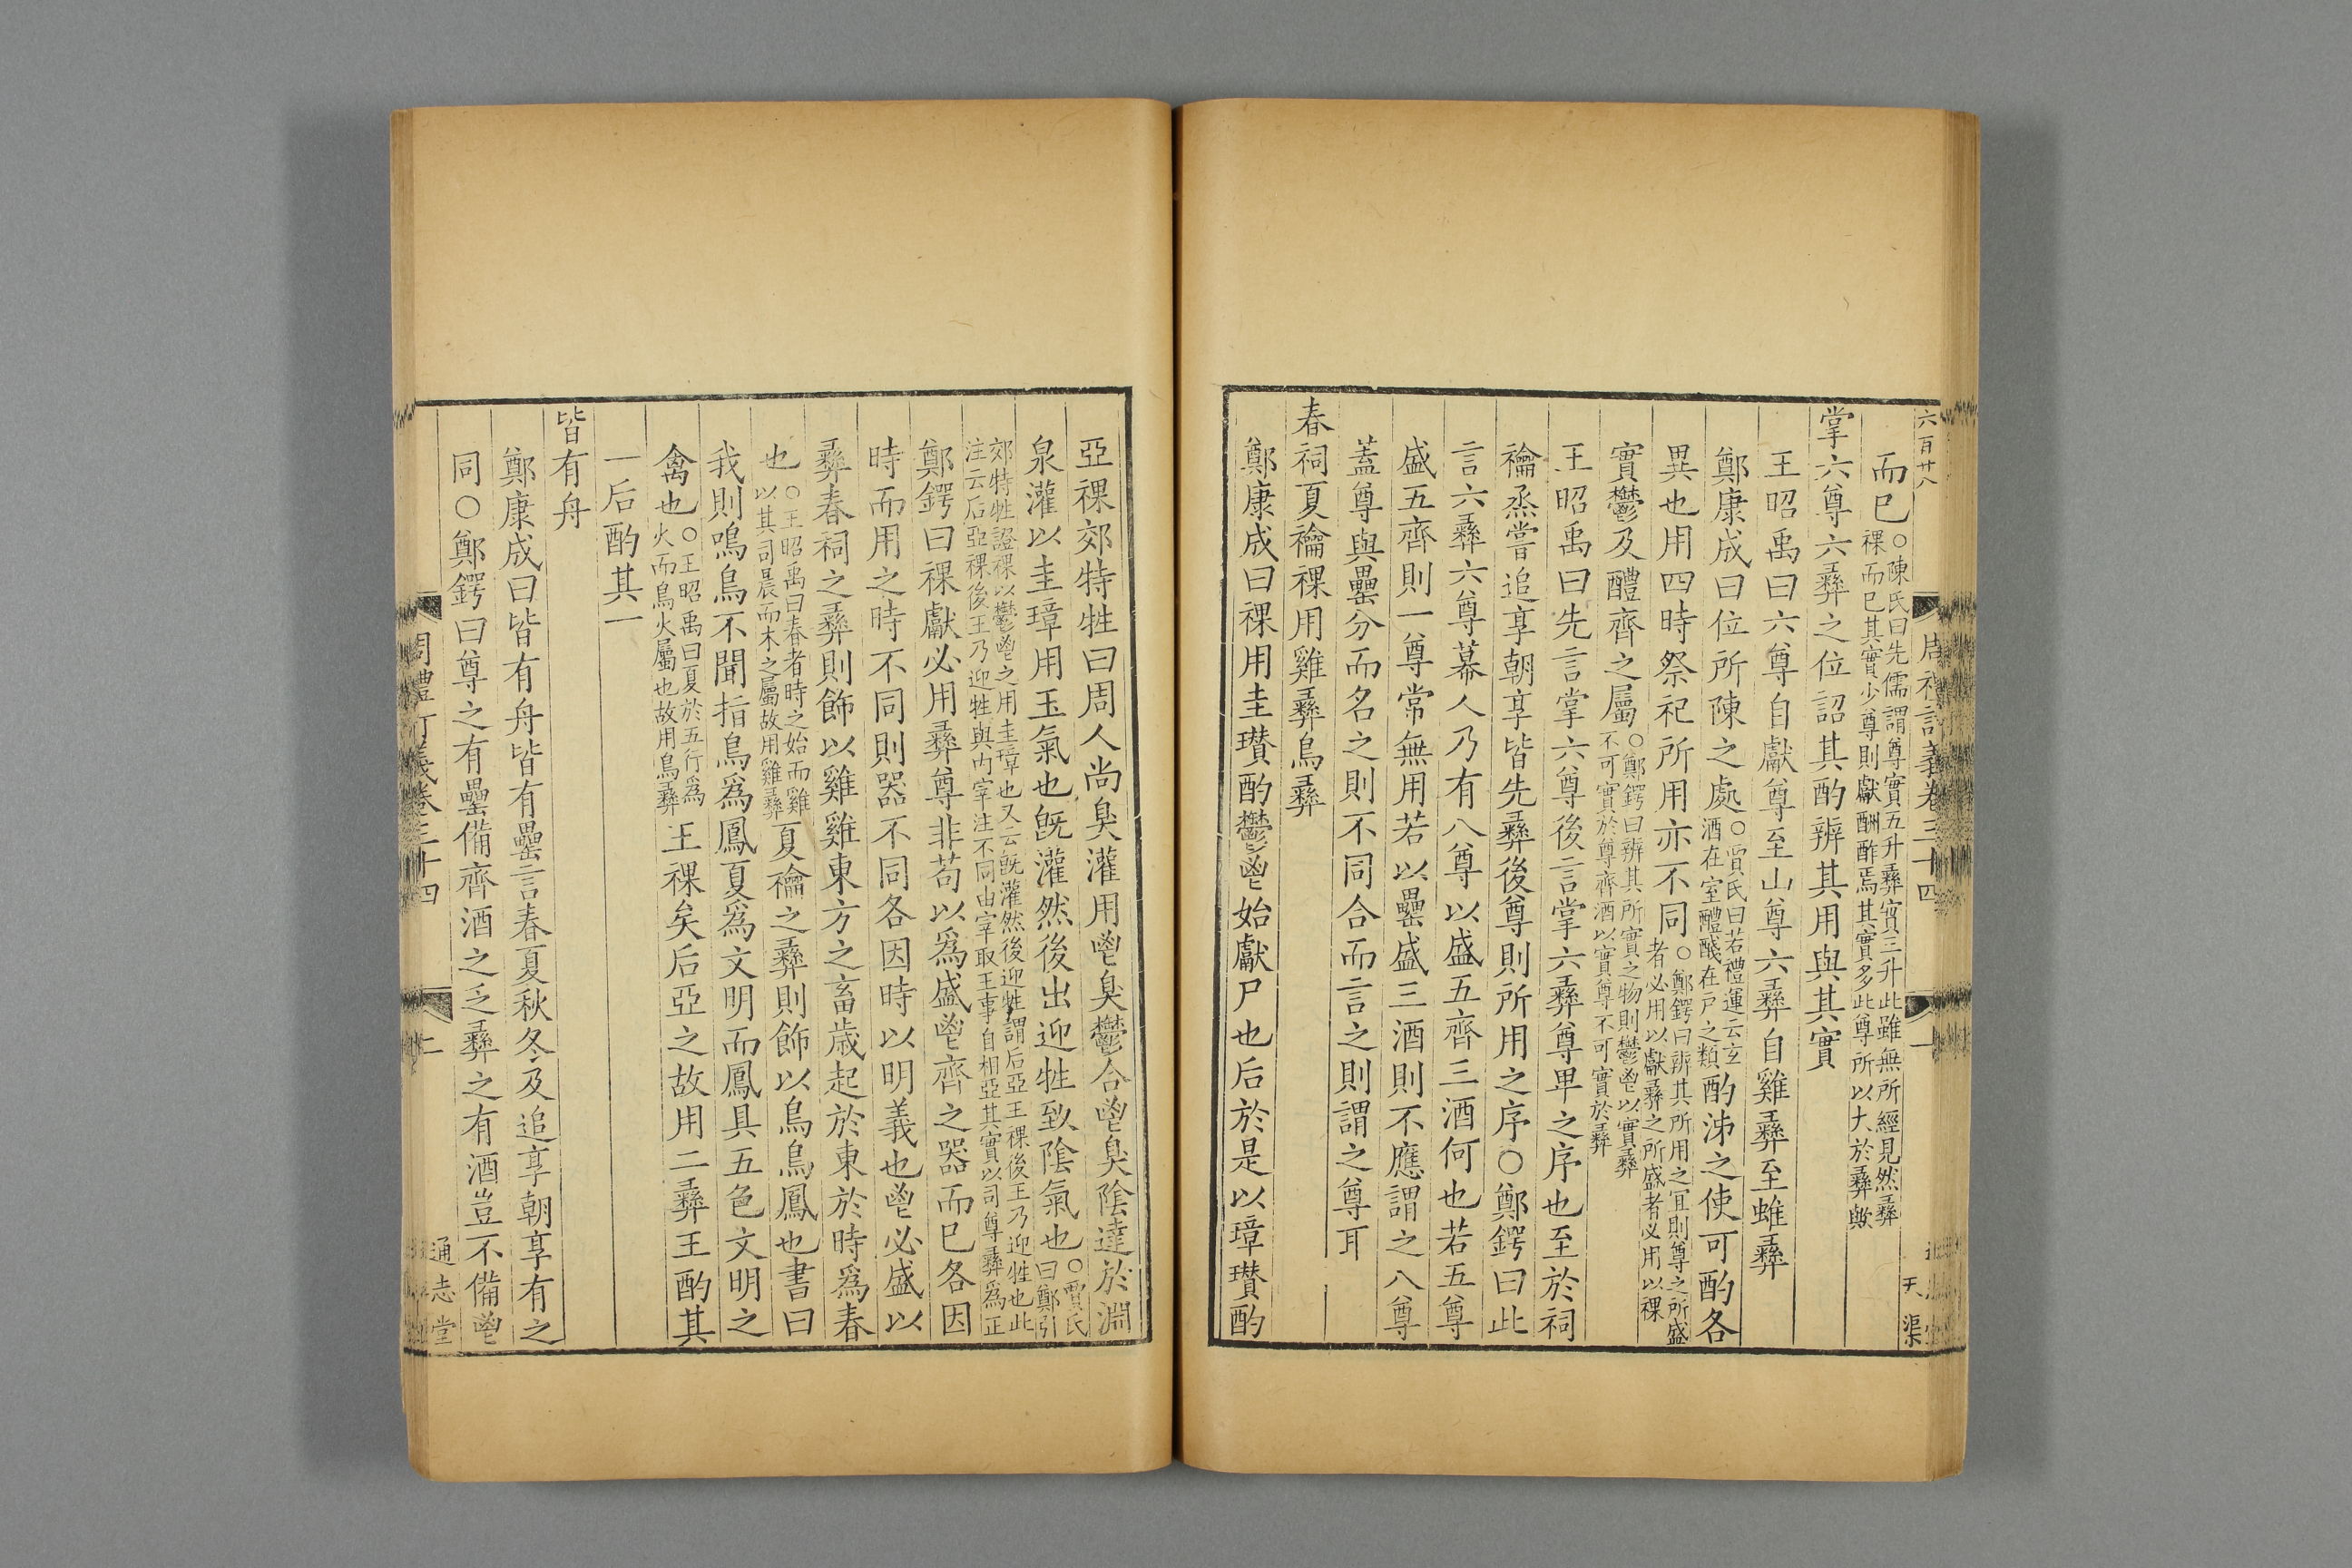 六百廿八
而已○陳氏曰先儒謂尊實五升彝實三升此雖無所經見然彝
祼而已其實少尊則獻酬酢焉其實多此尊所以大於彝歟
掌六尊六彝之位詔其酌辨其用與其實
王昭禹曰六尊自獻尊至山尊六彝自雞彝至蜼彝
鄭康成曰位所陳之處○賈氏曰若禮運云玄
酒在室醴醆在戸之類酌泲之使可酌各
異也用四時祭祀所用亦不同○鄭鍔曰辨其所用之宜則尊之所盛
者必用以獻彝之所盛者必用以祼
實鬱及醴齊之屬○鄭鍔曰辨其所實之物則鬱鬯以實彝
不可實於尊齊酒以實尊不可實於彝
王昭禹曰先言掌六尊後言掌六彝尊卑之序也至於祠
禴烝嘗追享朝享皆先彝後尊則所用之序○鄭鍔曰此
言六彝六尊冪人乃有八尊以盛五齊三酒何也若五尊
盛五齊則一尊常無用若以罍盛三酒則不應謂之八尊
蓋尊與罍分而名之則不同合而言之則謂之尊耳
春祠夏禴祼用雞彝鳥彝
鄭康成曰祼用圭瓚酌鬱鬯始獻尸也后於是以璋瓚酌
周禮訂義卷三十四
一
天渠
亞祼郊特牲曰周人尚臭灌用鬯臭鬱合鬯臭陰達於淵
泉灌以圭璋用玉氣也旣灌然後出迎牲致陰氣也○賈氏
曰鄭引
郊特牲證祼以鬱鬯之用圭璋也又云旣灌然後迎牲謂后亞王祼後王乃迎牲也此
注云后亞祼後王乃迎牲與内宰注不同由宰取王事自相亞其實以司尊彝爲正
鄭鍔曰祼獻必用彝尊非苟以爲盛鬯齊之器而已各因
時而用之時不同則器不同各因時以明義也鬯必盛以
彝春祠之彝則飾以雞雞東方之畜歲起於東於時爲春
也○王昭禹曰春者時之始而雞
以其司晨而木之屬故用雞彝夏禴之彝則飾以鳥鳥鳳也書曰
我則鳴鳥不聞指鳥爲鳳夏爲文明而鳳具五色文明之
禽也○王昭禹曰夏於五行爲
火而鳥火屬也故用鳥彝王祼矣后亞之故用二彝王酌其
一后酌其一
皆有舟
鄭康成曰皆有舟皆有罍言春夏秋冬及追享朝享有之
同○鄭鍔曰尊之有罍備齊酒之乏彝之有酒豈不備鬯
周禮訂義卷三十四
二
通志堂